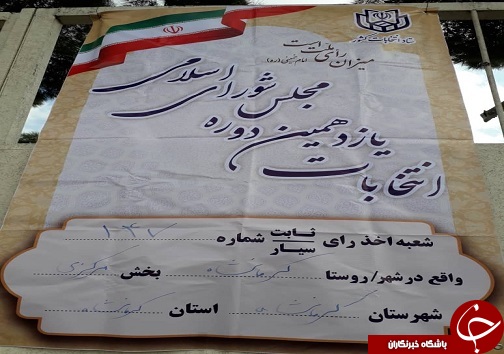 ستاد انتخابات کشور
میزان رای ملت است
امام خمینی (ره)
انتخابات
یازدهمین دوره
مجلس شورای اسلامی
شعبه اخذ رای ثابت / سیار شماره ۱۴۷
واقع در شهر/روستا کرمانشاه بخش مرکزی
شهرستان کرمانشاه استان کرمانشاه
باشگاه خبرنگاران